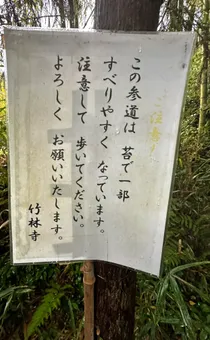 ご注意
この参道は 苔で一部
すべりやすく なっています。
注意して 歩いてください。
よろしく お願いいたします。
竹林寺